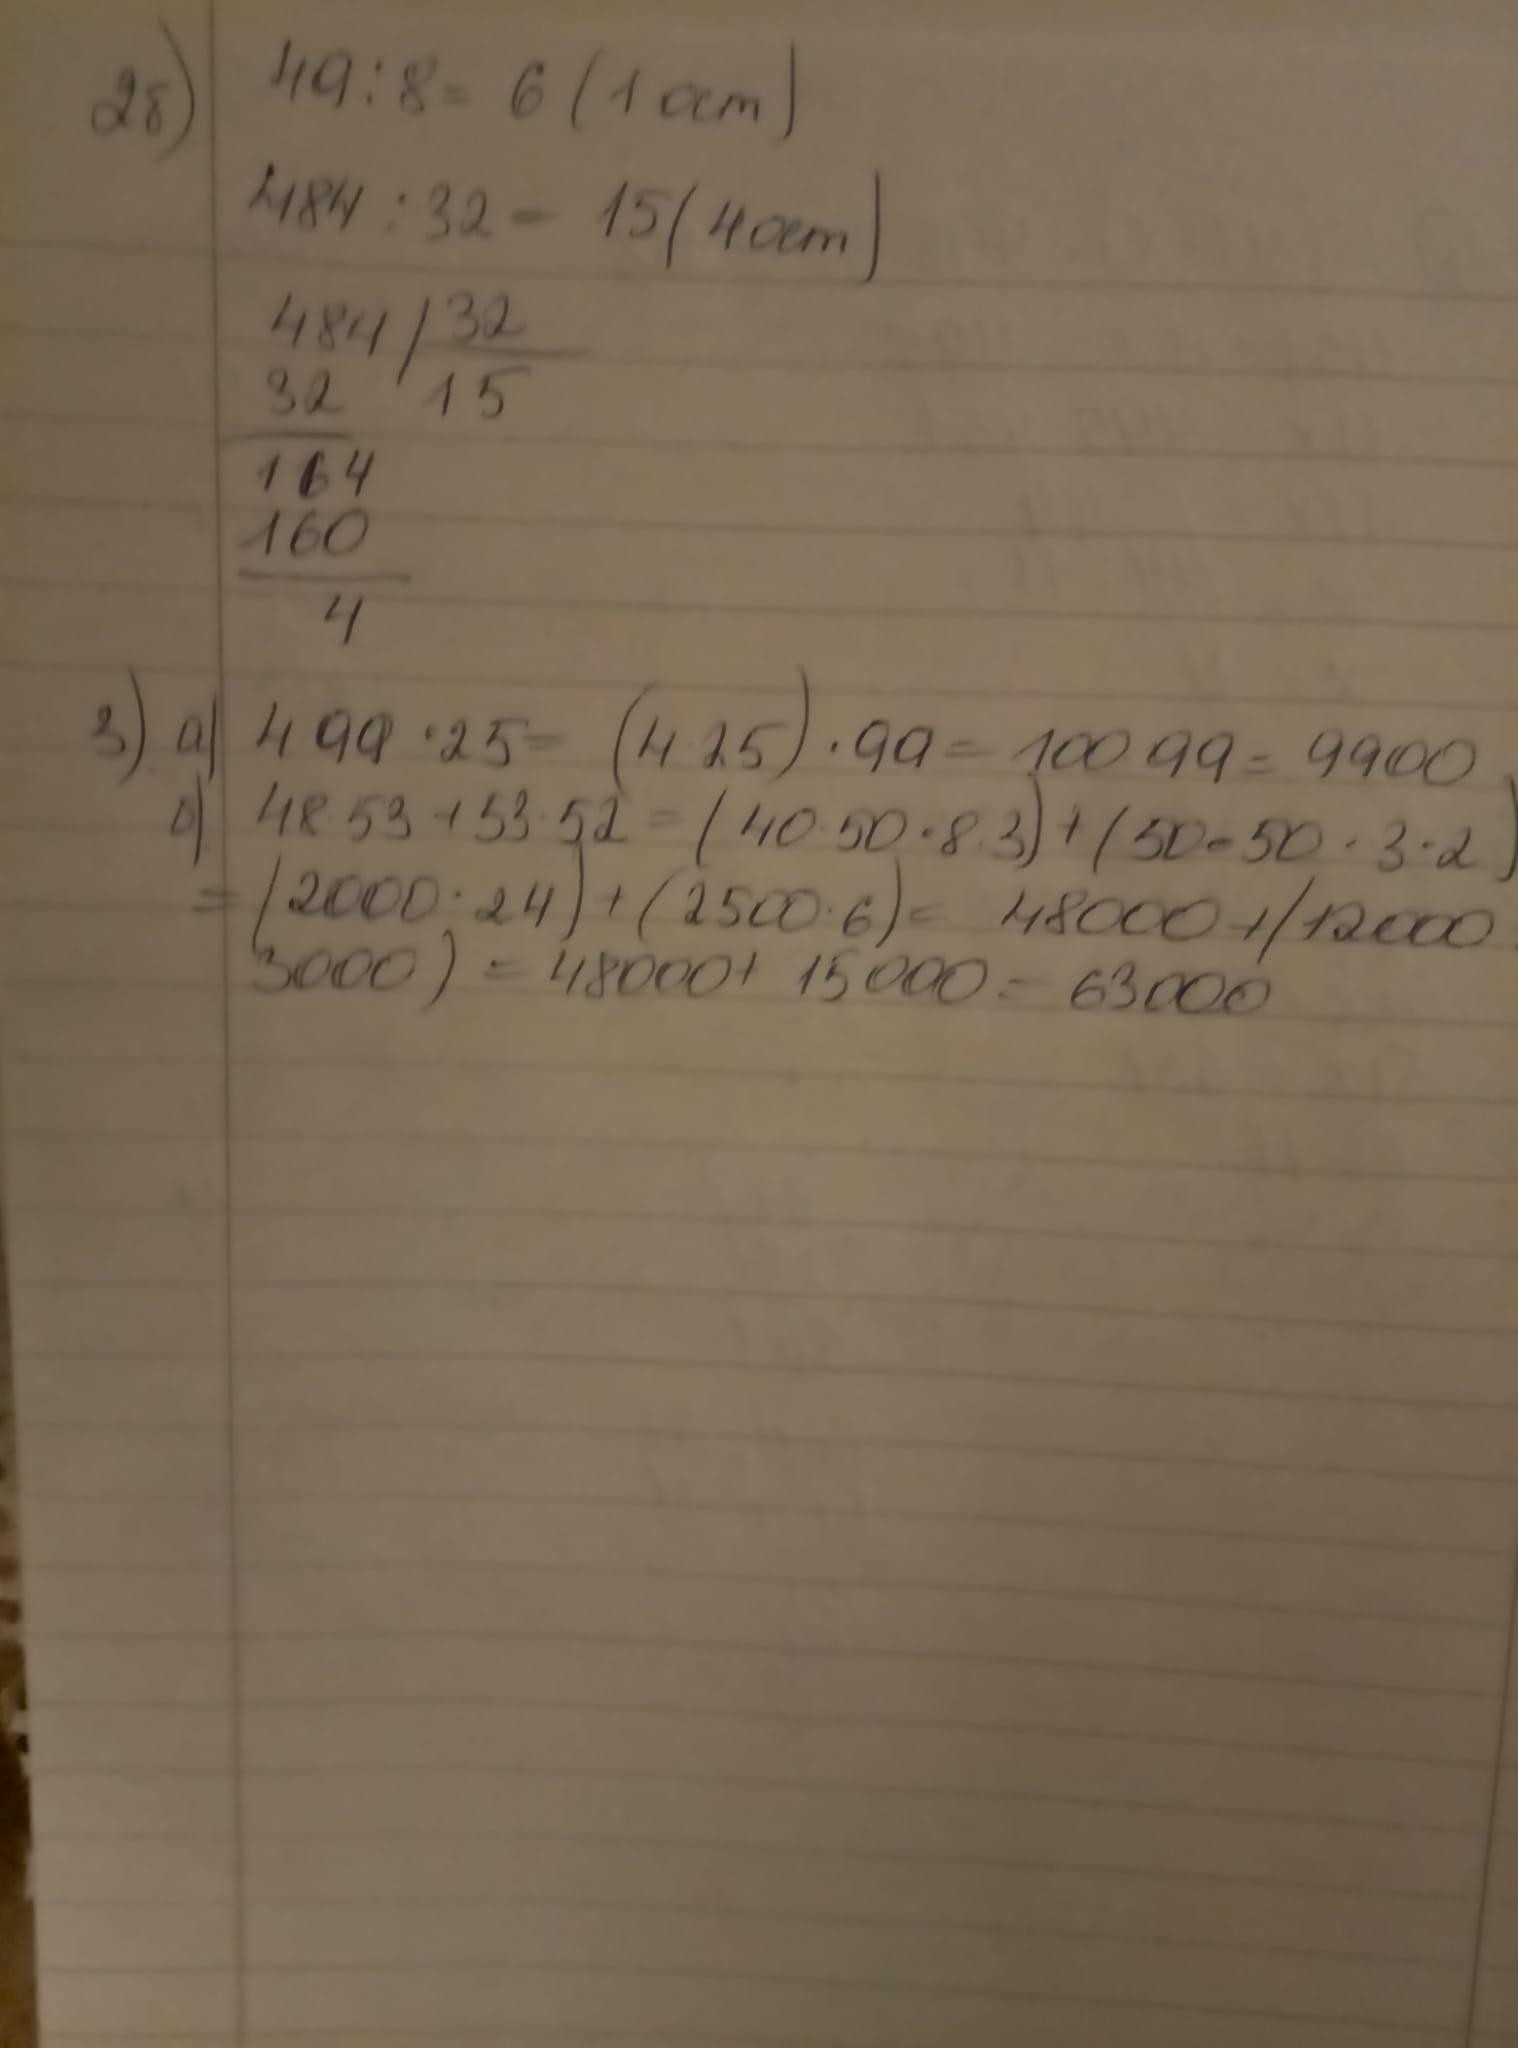 2б) 49:8= 6 (1 ост)
484 : 32 = 15 (4 ост)
484 / 32
32 15
164
160
4
3) а) 4 99 · 25 = (4·25) · 99 = 100 99 = 9900
б) 48·53 + 53·52 = (40·50 · 8·3) + (50·50 · 3·2)
= (2000 · 24) + (2500·6) = 48000 + (12000
3000) = 48000 + 15000 = 63000